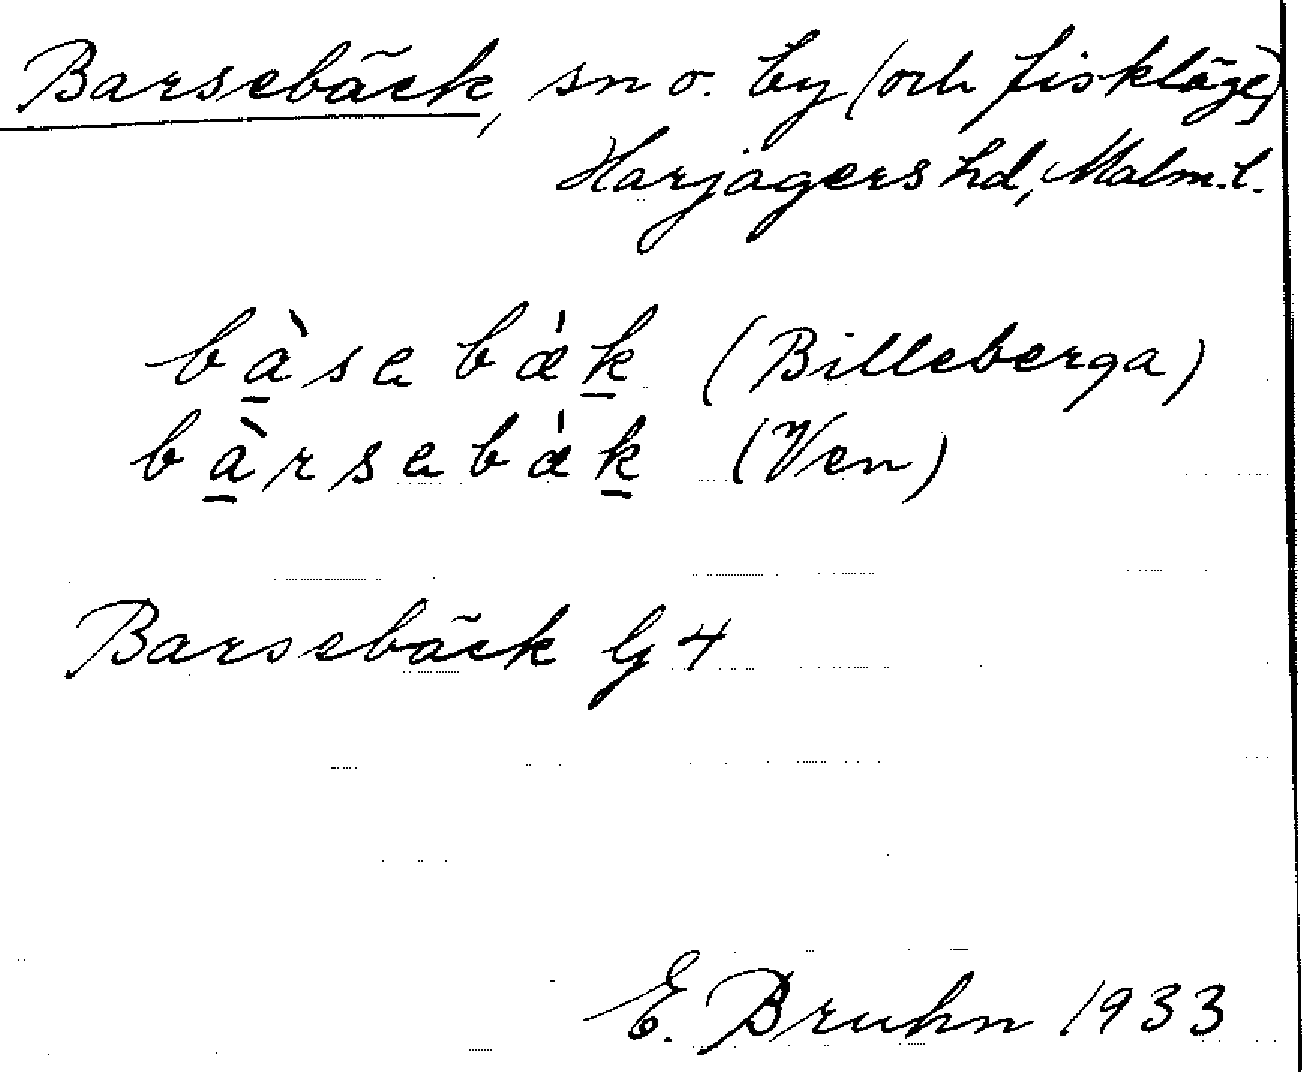 Barsebäck, sn o. by (och fiskläge)
Harjagers hd, Malm. l.
bà̠sebǽk̠ (Billeberga)
bà̠rsebǽk̠ (Ven)
Barsebäck G4
E. Bruhn 1933